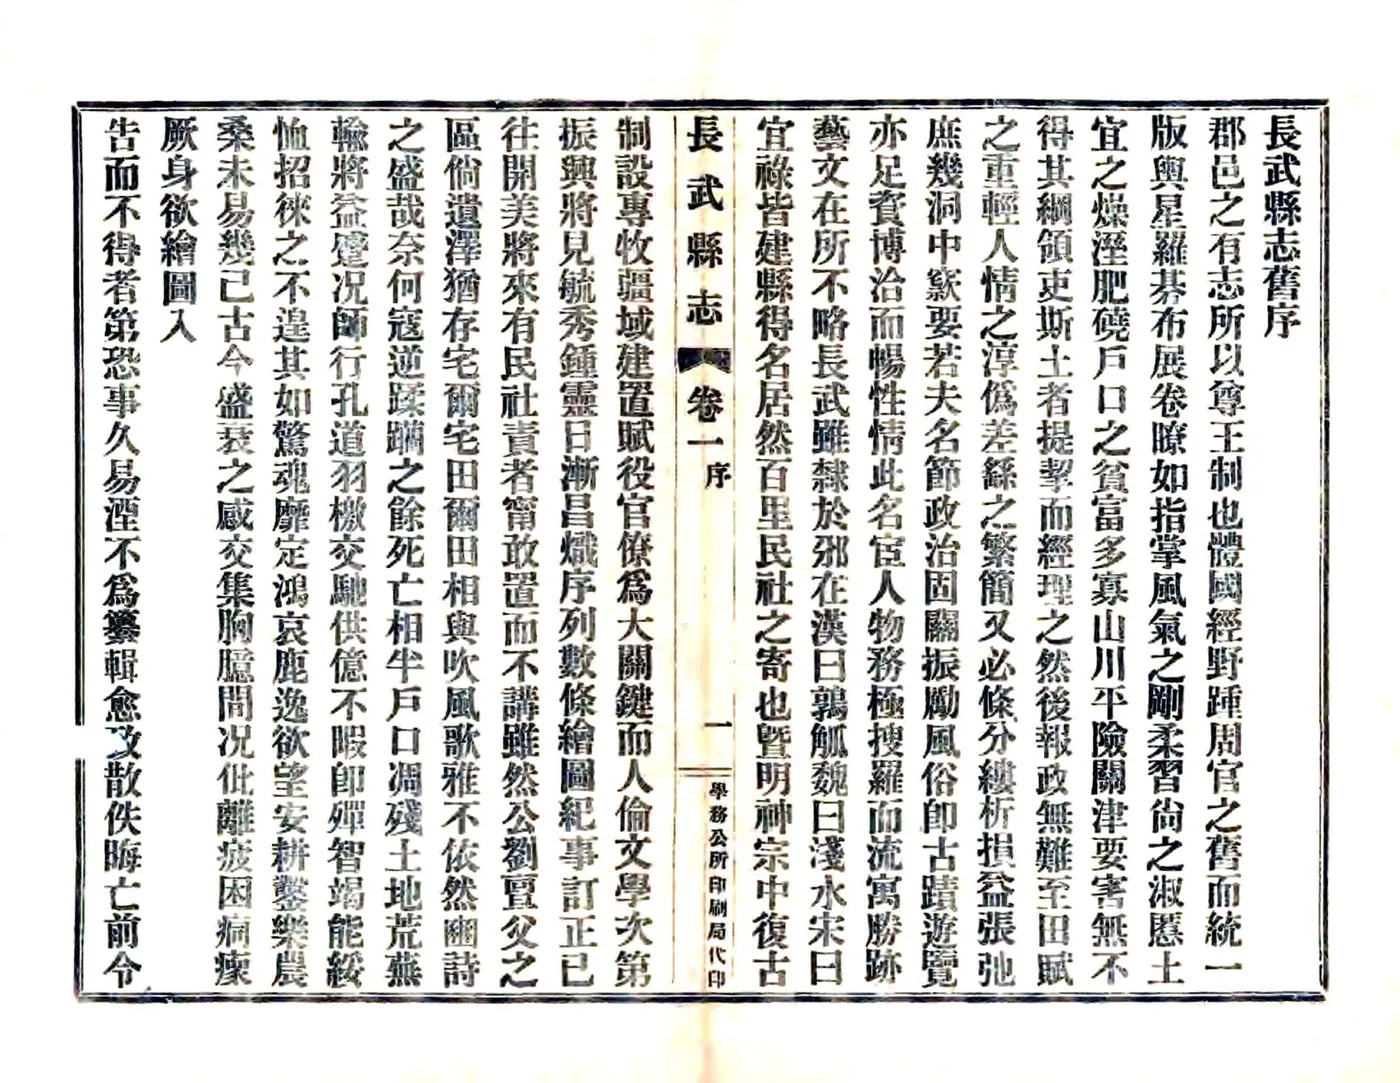 長武縣志舊序
郡邑之有志所以尊王制也體國經野踵周官之舊而統一
版輿星羅碁布展卷瞭如指掌風氣之剛柔習尚之淑慝土
宜之燥溼肥磽戶口之貧富多寡山川平險關津要害無不
得其綱領吏斯土者提挈而經理之然後報政無難至田賦
之重輕人情之淳僞差繇之繁簡又必條分縷析損益張弛
庶幾洞中窾要若夫名節政治固關振勵風俗卽古蹟遊覽
亦足資博洽而暢性情此名宦人物務極搜羅而流寓勝跡
藝文在所不略長武雖隸於邠在漢曰鶉觚魏曰淺水宋曰
宜祿皆建縣得名居然百里民社之寄也曁明神宗中復古
長武縣志 卷一 序 一 學務公所印刷局代印
制設專牧疆域建置賦役官僚爲大關鍵而人倫文學次第
振興將見毓秀鍾靈日漸昌熾序列數條繪圖紀事訂正已
往開美將來有民社責者甯敢置而不講雖然公劉亶父之
區倘遺澤猶存宅爾宅田爾田相與吹風歌雅不依然豳詩
之盛哉奈何寇逆蹂躪之餘死亡相半戶口凋殘土地荒蕪
輸將益蹙况師行孔道羽檄交馳供億不暇卽殫智竭能綏
恤招徠之不遑其如驚魂靡定鴻哀鹿逸欲望安耕鑿樂農
桑未易幾已古今盛衰之感交集胸臆間况仳離疲困痌瘝
厥身欲繪圖入
告而不得者第恐事久易湮不爲纂輯愈致散佚晦亡前令